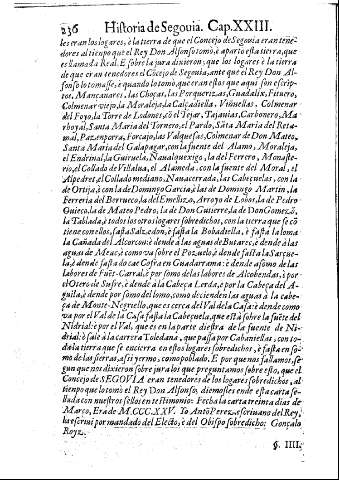 236 Historia de Segouia. Cap. XXIII.
les eran los logares, è la tierra de que el Concejo de Segouia eran tene-
dores al tiempo que el Rey Don Alfonso tomò, è aparto esta tierra, que
es llamada Real. E sobre la jura dixieron; que los logares è la tierra
de que eran tenedores el Cōcejo de Segouia, ante que el Rey Don Al-
fonso lo tomasse, è quando lo tomò, que eran estos que aqui son escrip-
tos, Mançanares, las Choças, las Porquerizas, Guadalix, Pinuero,
Colmenar viejo, la Moraleja, la Calçadiella, Viñuellas. Colmenar
del Foyo, la Torre de Lodones, cō el Tejar, Tajauias, Carbonero, Ma-
rhoyal, Santa Maria del Tornero, el Pardo, Sāta Maria del Reta-
mal, Pozenporra, Forcajo, los Valqueiso, Colmenar de Don Mateo,
Santa Maria del Galapagar, con la fuente del Alamo, Moraleja,
el Endrinal, la Guiruela, Naualquexigo, la del Ferrero, Monaste-
rio, el Collado de Villalua, el Alameda, con la fuente del Moral, el
Alpedret, el Collado mediano, Nauacerrada, las Cabeçuelas, con la
de Ortijo, è con la de Domingo Garcia, è las de Domingo Martin, la
Ferreria del Berrueco, la del Emellizo, Arroyo de Lobos, la de Pedro
Guieco, la de Mateo Pedro, la de Don Gutierre, la de Don Gomezō,
la Tablada, è todos los otros logares sobredichos, con la tierra que se cō
tiene con ellos, fasta Salzedon, è fasta la Bobadiella, è fasta la loma
la Cañada del Alcorcon: è dende à las aguas de Butarec, è dende à las
aguas de Meuc, è como va sobre el Pozuelo, è dende fasta la Sarçue-
la: è dende fasta do cae Cofio en Guadarrama: è dende asomo de las
labores de Fuēt-Carral, è por somo de las labores de Alcobendas, è por
el Otero de Sufre, è dende à la Cabeça Lerda, è por la Cabeça del A-
guila, è dende por somo del lomo, como decienden las aguas à la cabe-
ça de Monte-Negriello, que es cerca del Val de la Casa: è dende como
va por el Val de la Casa fasta la Cabeçuela, que està sobre la fuēte del
Nidrial: è por el Val, que es en la parte diestra de la fuente de Ni-
drial: è sale à la carrera Toledana, que passa por Cabaniellas, con to-
da la tierra que se encierra en estos logares sobredichos, è fasta en so-
mo de las sierras, assi yermo, como poblado. E por que nos fallamos, se-
gun que nos dixieron sobre jura los que preguntamos sobre esto, que el
Concejo de SEGOVIA eran tenedores de los logares sobredichos, al
tiempo que lo tomò el Rey Don Alfonso, diemosles ende esta carta se-
llada con nuestros sellos en testimonio: Fecha la carta treinta dias de
Março, Era de M.CCC.XXV. Yo Antō Perez, escriuano del Rey,
la escriui por mandado del Electo, è del Obispo sobredicho: Gonçalo
Royz.
§. IIII.